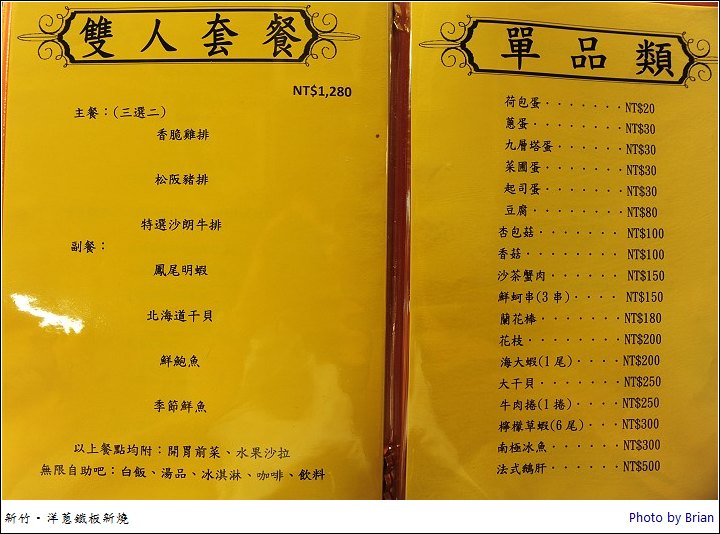 雙人套餐
NT$1,280
主餐：(三選二)
香脆雞排
松阪豬排
特選沙朗牛排
副餐：
鳳尾明蝦
北海道干貝
鮮鮑魚
季節鮮魚
以上餐點均附：開胃前菜、水果沙拉
無限自助吧：白飯、湯品、冰淇淋、咖啡、飲料
單品類
荷包蛋‧‧‧‧‧‧‧‧NT$20
蔥蛋‧‧‧‧‧‧‧‧‧NT$30
九層塔蛋‧‧‧‧‧‧‧NT$30
菜圃蛋‧‧‧‧‧‧‧‧NT$30
起司蛋‧‧‧‧‧‧‧‧NT$30
豆腐‧‧‧‧‧‧‧‧‧NT$80
杏包菇‧‧‧‧‧‧‧‧NT$100
香菇‧‧‧‧‧‧‧‧‧NT$100
沙茶蟹肉‧‧‧‧‧‧‧NT$150
鮮蚵串(3串)‧‧‧‧NT$150
蘭花棒‧‧‧‧‧‧‧‧NT$180
花枝‧‧‧‧‧‧‧‧‧NT$200
海大蝦(1尾)‧‧‧‧NT$200
大干貝‧‧‧‧‧‧‧‧NT$250
牛肉捲(1捲)‧‧‧‧NT$250
檸檬草蝦(6尾)‧‧‧NT$300
南極冰魚‧‧‧‧‧‧‧NT$300
法式鵝肝‧‧‧‧‧‧‧NT$500
新竹‧洋蔥鐵板新燒
Photo by Brian